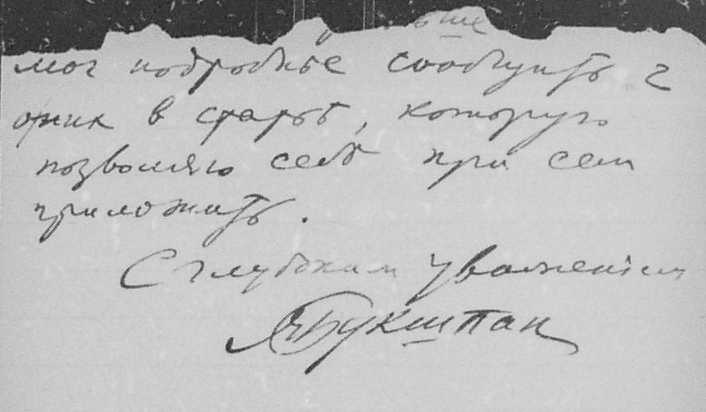 мог подробнѣе сообщить
в статьѣ, которую
позволяю себѣ при сем
приложить.
С глубоким уваженіем
Я Букшпан